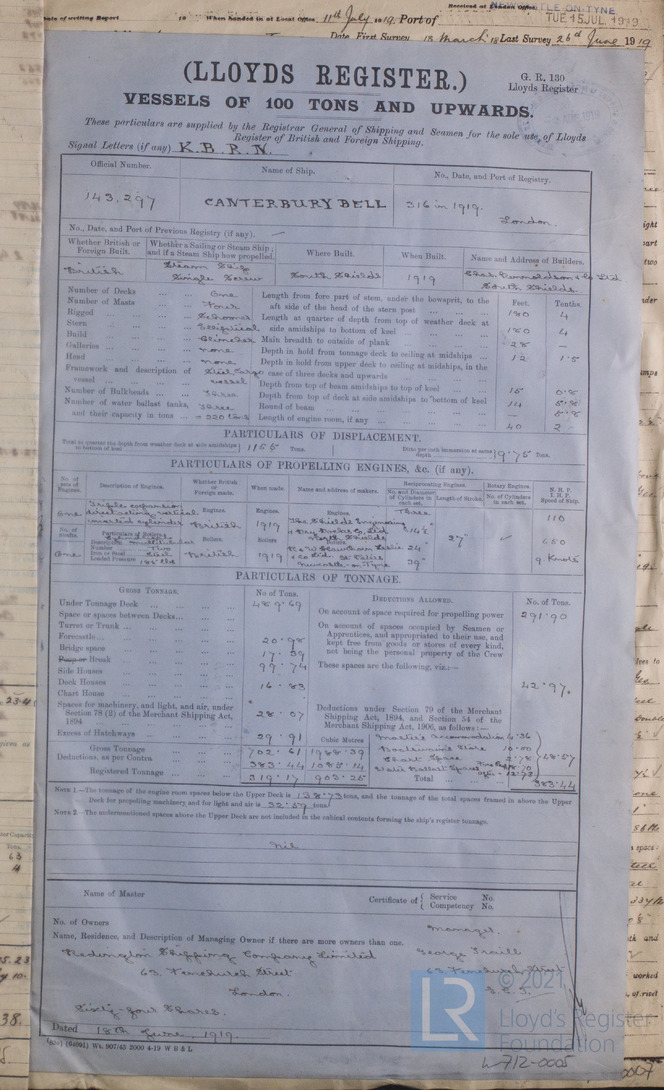 Date of writing Report 19 When handed in at Local Office 11th July 1919 Port of
Received at London Office
NEWCASTLE-ON-TYNE
TUE 15 JUL 1919
Date, First Survey 18 March 18 Last Survey 26th June 1919
(LLOYDS REGISTER.)
G. R. 130
Lloyds Register
VESSELS OF 100 TONS AND UPWARDS.
These particulars are supplied by the Registrar General of Shipping and Seamen for the sole use of Lloyds
Register of British and Foreign Shipping.
Signal Letters (if any) K.B.R.N.
Official Number. Name of Ship. No., Date, and Port of Registry.
143,297 CANTERBURY BELL 316 in 1919.
London.
No., Date, and Port of Previous Registry (if any).
Whether British or Foreign Built. Whether a Sailing or Steam Ship; and if a Steam Ship how propelled. Where Built. When Built. Name and Address of Builders.
British Steam Ship Single Screw South Shields 1919
South Shields.
Number of Decks One
Number of Masts Four
Rigged Schooner
Stern Elliptical
Build Clincher
Galleries none
Head none
Framework and description of vessel Steel Cargo vessel
Number of Bulkheads Three
Number of water ballast tanks, and their capacity in tons Three = 220 tons
Feet. Tenths.
Length from fore part of stem, under the bowsprit, to the aft side of the head of the stern post 180 4
Length at quarter of depth from top of weather deck at side amidships to bottom of keel 180 4
Main breadth to outside of plank 28 —
Depth in hold from tonnage deck to ceiling at midships 12 1·5
Depth in hold from upper deck to ceiling at midships, in the case of three decks and upwards
Depth from top of beam amidships to top of keel 15
Depth from top of deck at side amidships to bottom of keel 14
Round of beam
Length of engine room, if any 40 2
PARTICULARS OF DISPLACEMENT.
Total to quarter the depth from weather deck at side amidships to bottom of keel 1155 Tons. Ditto per inch immersion at same depth 9·75 Tons.
PARTICULARS OF PROPELLING ENGINES, &c. (if any).
No. of sets of Engines. Description of Engines. Whether British or Foreign made. When made. Name and address of makers. Reciprocating Engines. Rotary Engines. N. H. P. I. H. P. Speed of Ship.
No. and Diameter of Cylinders in each set. Length of Stroke. No. of Cylinders in each set.
One Triple expansion direct acting vertical inverted cylinder Engines. British Engines. 1919 Engines. The Shields Engineering & Dry Dock Co. Ltd North Shields Three 27" 110
No. of Shafts. Particulars of Boilers. Boilers. Boilers. Boilers. 650
One Number Two Iron or Steel Steel Loaded Pressure 185 lbs British 1919 R & W Hawthorn Leslie & Co Ltd. St Peters Newcastle-on-Tyne 24" 39" 9 Knots
PARTICULARS OF TONNAGE.
GROSS TONNAGE. No. of Tons. DEDUCTIONS ALLOWED. No. of Tons.
Under Tonnage Deck 489·69
On account of space required for propelling power 291·90
Space or spaces between Decks
Turret or Trunk
Forecastle 20·98
Bridge space 17·09
Poop or Break 99·74
Side Houses
Deck Houses 16·83
Chart House
On account of spaces occupied by Seamen or Apprentices, and appropriated to their use, and kept free from goods or stores of every kind, not being the personal property of the Crew
These spaces are the following, viz.:—
42·97
Spaces for machinery, and light, and air, under Section 78 (2) of the Merchant Shipping Act, 1894 28·07
Excess of Hatchways 29·91
Deductions under Section 79 of the Merchant Shipping Act, 1894, and Section 54 of the Merchant Shipping Act, 1906, as follows:—
Cubic Metres
Gross Tonnage 702·61 1988·39
Deductions, as per Contra 383·44 1085·14
Registered Tonnage 319·17 903·25
Master's accommodation 4·36
Boatswain's Store 10·00
Chart Space
Water Ballast Space
48·57
Total 383·44
NOTE 1.—The tonnage of the engine room spaces below the Upper Deck is 138·73 tons, and the tonnage of the total spaces framed in above the Upper
Deck for propelling machinery and for light and air is 32·57 tons
NOTE 2.—The undermentioned spaces above the Upper Deck are not included in the cubical contents forming the ship's register tonnage.
Nil
Name of Master
Certificate of { Service No.
Competency No.
No. of Owners
Name, Residence, and Description of Managing Owner if there are more owners than one.
Manager.
Shipping Company Limited George Traill
63 Fenchurch Street 63 Fenchurch Street
London. E.C.3.
Sixty-four Shares.
Dated 18th June 1919.
W 712-0005
© 2021
LR
Lloyd's Register
Foundation